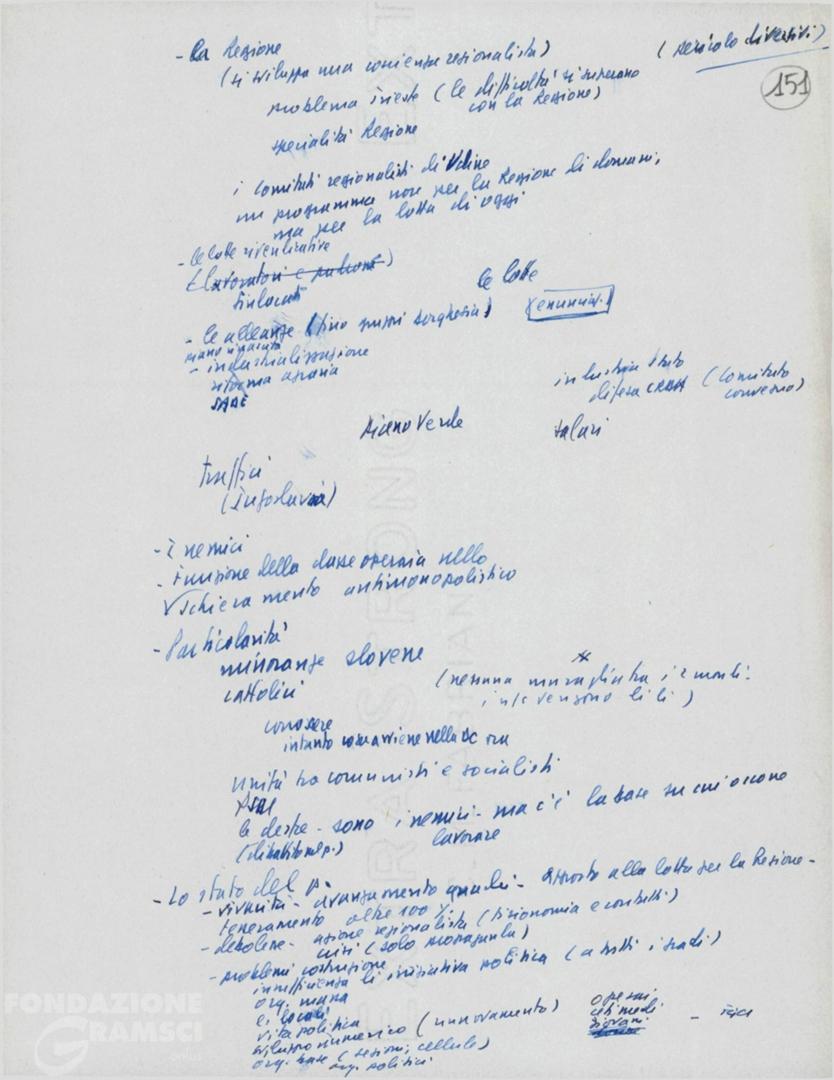 - La Regione
(si sviluppa una coscienza regionalista)
(pericolo diversivi)
151
problema Trieste (le difficoltà si superano
con la Regione)
specialità Regione
i Comitati regionalisti di Udine
un programma non per la Regione di domani,
ma per la lotta di oggi
- le lotte rivendicative
(lavoratori e padroni)
Sindacati
le lotte
- le alleanze (fino grossi borghesia)
piano rinascita
- industrializzazione
riforma agraria
SADE
industria Stato
difesa CRDA (Comitato
convegno)
Piano Verde
salari
traffici
(Jugoslavia)
- I nemici
- Funzione della classe operaia nello
schieramento antimonopolistico
- Particolarità
minoranze slovene
cattolici
(nessuna muraglia tra i 2 mondi:
conoscere
intanto cosa avviene nella DC ora
Unità tra comunisti e socialisti
PSDI
le destre - sono i nemici - ma c'è la base su cui occorre
lavorare
- Lo stato del p.
- vivacità - avanzamento quadri - apporto alla lotta per la Regione -
tesseramento oltre 100%
- debolezze - azione regionalista (fisionomia e contatti)
crisi (solo propaganda)
- problemi costruzione
insufficienza di iniziativa politica (a tutti i gradi)
org. massa
e. locali
vita politica
sviluppo numerico (rinnovamento)
operai
ceti medi
giovani
org. base (sezioni, cellule)
org. politici
FONDAZIONE
GRAMSCI
onlus
EXTRA STRONG
FABRIANO